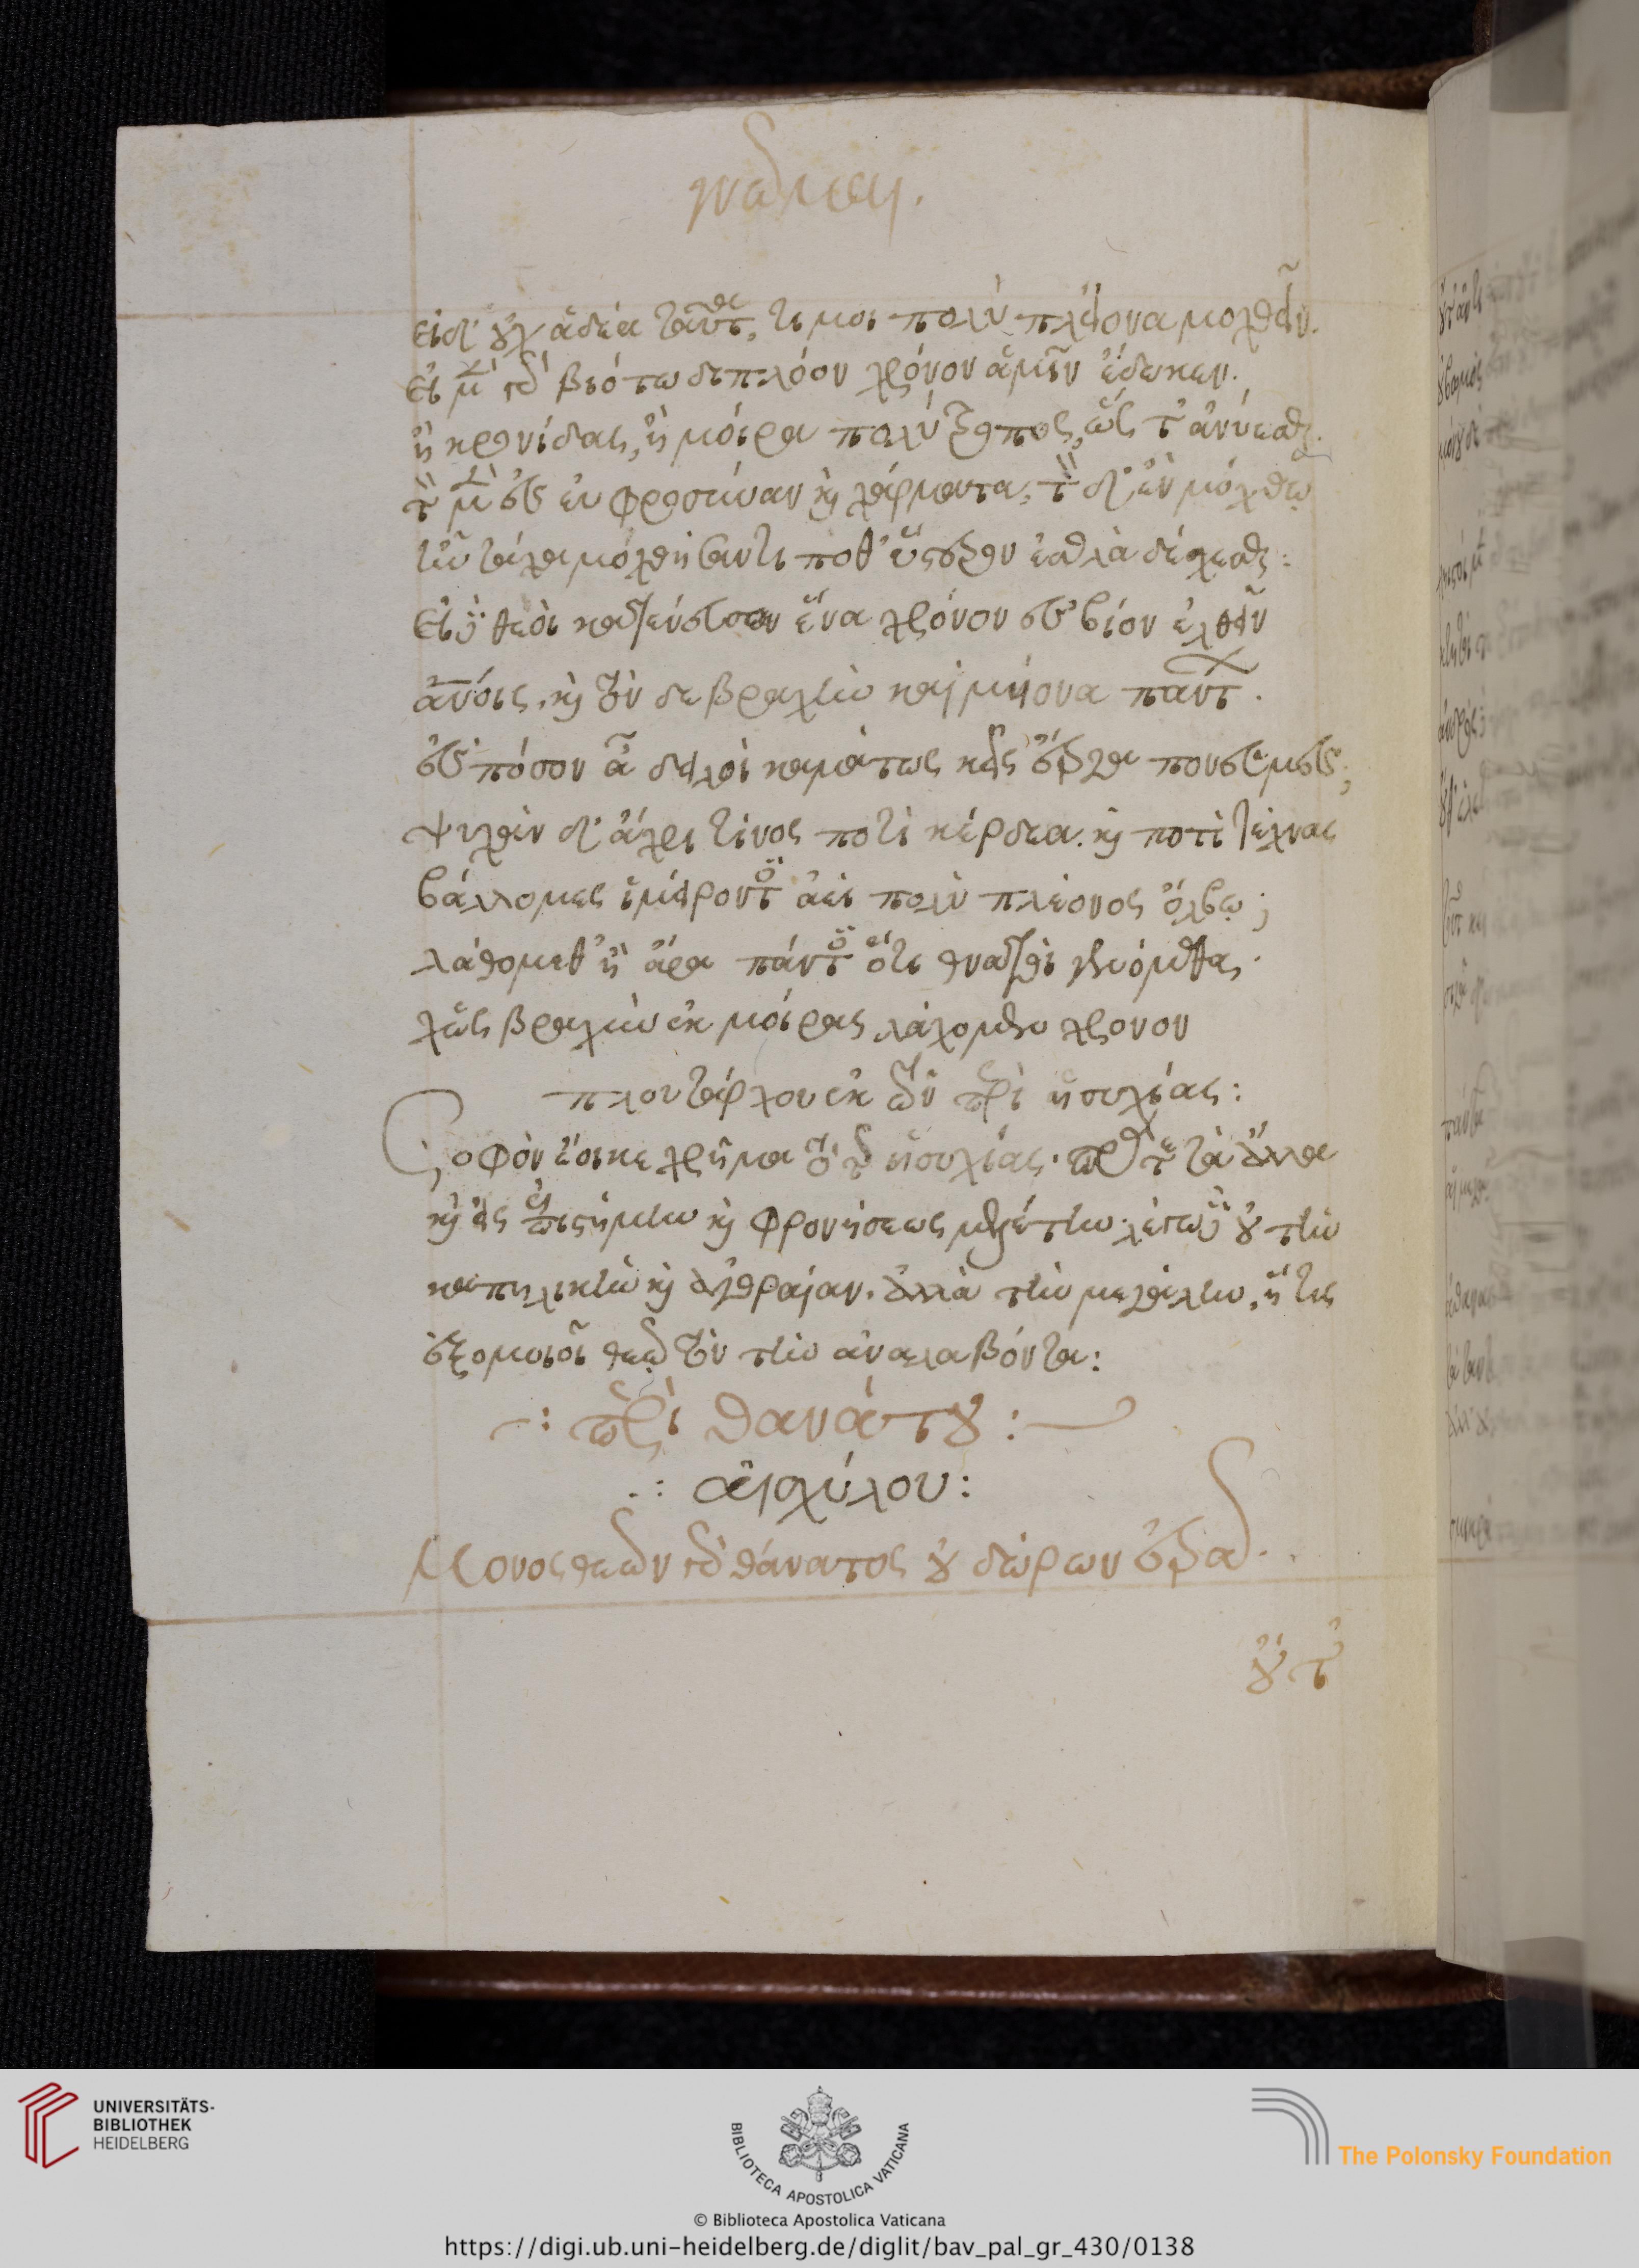 γνῶμαι.
εἰ δ' οὐχ ἁδέα ταῦτα, τί μοι πολὺ πλείονα μοχθεῖν.
εἰ μὲν γὰρ βιότω διπλόον χρόνον ἄμμιν ἔδωκεν.
ἢ κρονίδας, ἢ μοῖρα πολύτροπος, ὥς τ' ἀνύεσθαι.
τὸν μὲν ἐς εὐφροσύναν καὶ χάρματα, τὸν δ' ἐν μόχθῳ
ἦν τάχα μοχθήσαντι ποθ' ὕστερον ἐσθλὰ δέχεσθαι:
εἰ δὲ θεοὶ κατένευσαν ἕνα χρόνον ἐς βίον ἐλθεῖν
ἀνοις, καὶ τόνδε βραχὺν καὶ μήονα πάντων.
ἐς πόσον ἆ δειλοὶ καμάτως κεἰς ἔργα πονεῦμες;
ψυχὰν δ' ἄχρι τίνος ποτὶ κέρδεα. καὶ ποτὶ τέχνας
βάλλομες ἱμείροντες ἀεὶ πολὺ πλέονος ὄλβω;
λάθομεθ' ἦ ἄρα πάντες ὅτι θνατοὶ γενόμεθα,
χὡς βραχὺν ἐκ μοίρας λάχομεν χρόνον
πλουτάρχου ἐκ τοῦ περὶ ἡσυχίας:
Σοφὸν ἔοικε χρῆμα τὸ τῆς ἡσυχίας. πρός τε τὰ ἄλλα
καὶ εἰς ἐπιστήμην καὶ φρονήσεως μελέτην. λέγω δὲ οὐ τὴν
καπηλικὴν καὶ ἀγοραίαν. ἀλλὰ τὴν μεγάλην, ἥτις
ἐξομοιοῖ θεῷ τὸν τὴν ἀναλαβόντα:
περὶ θανάτου:
αἰσχύλου:
Μόνος θεῶν γὰρ θάνατος οὐ δώρων ἐρᾷ.
οὔτ'
UNIVERSITÄTS-
BIBLIOTHEK
HEIDELBERG
BIBLIOTECA APOSTOLICA VATICANA
The Polonsky Foundation
© Biblioteca Apostolica Vaticana
https://digi.ub.uni-heidelberg.de/diglit/bav_pal_gr_430/0138